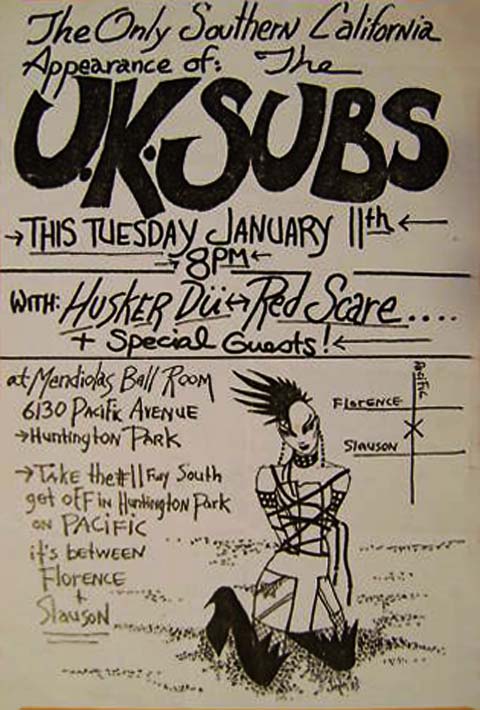 The Only Southern California
Appearance of: The
U.K. SUBS
→THIS TUESDAY JANUARY 11th←
→8PM←
WITH: HUSKER DÜ↔Red Scare....
+ Special Guests!←
at Mendiolas Ball Room
6130 Pacific Avenue
→Huntington Park
→Take the #11 Fwy South
get off in Huntington Park
on PACIFIC
it's between
Florence
+
Slauson
Pacific
Florence
Slauson